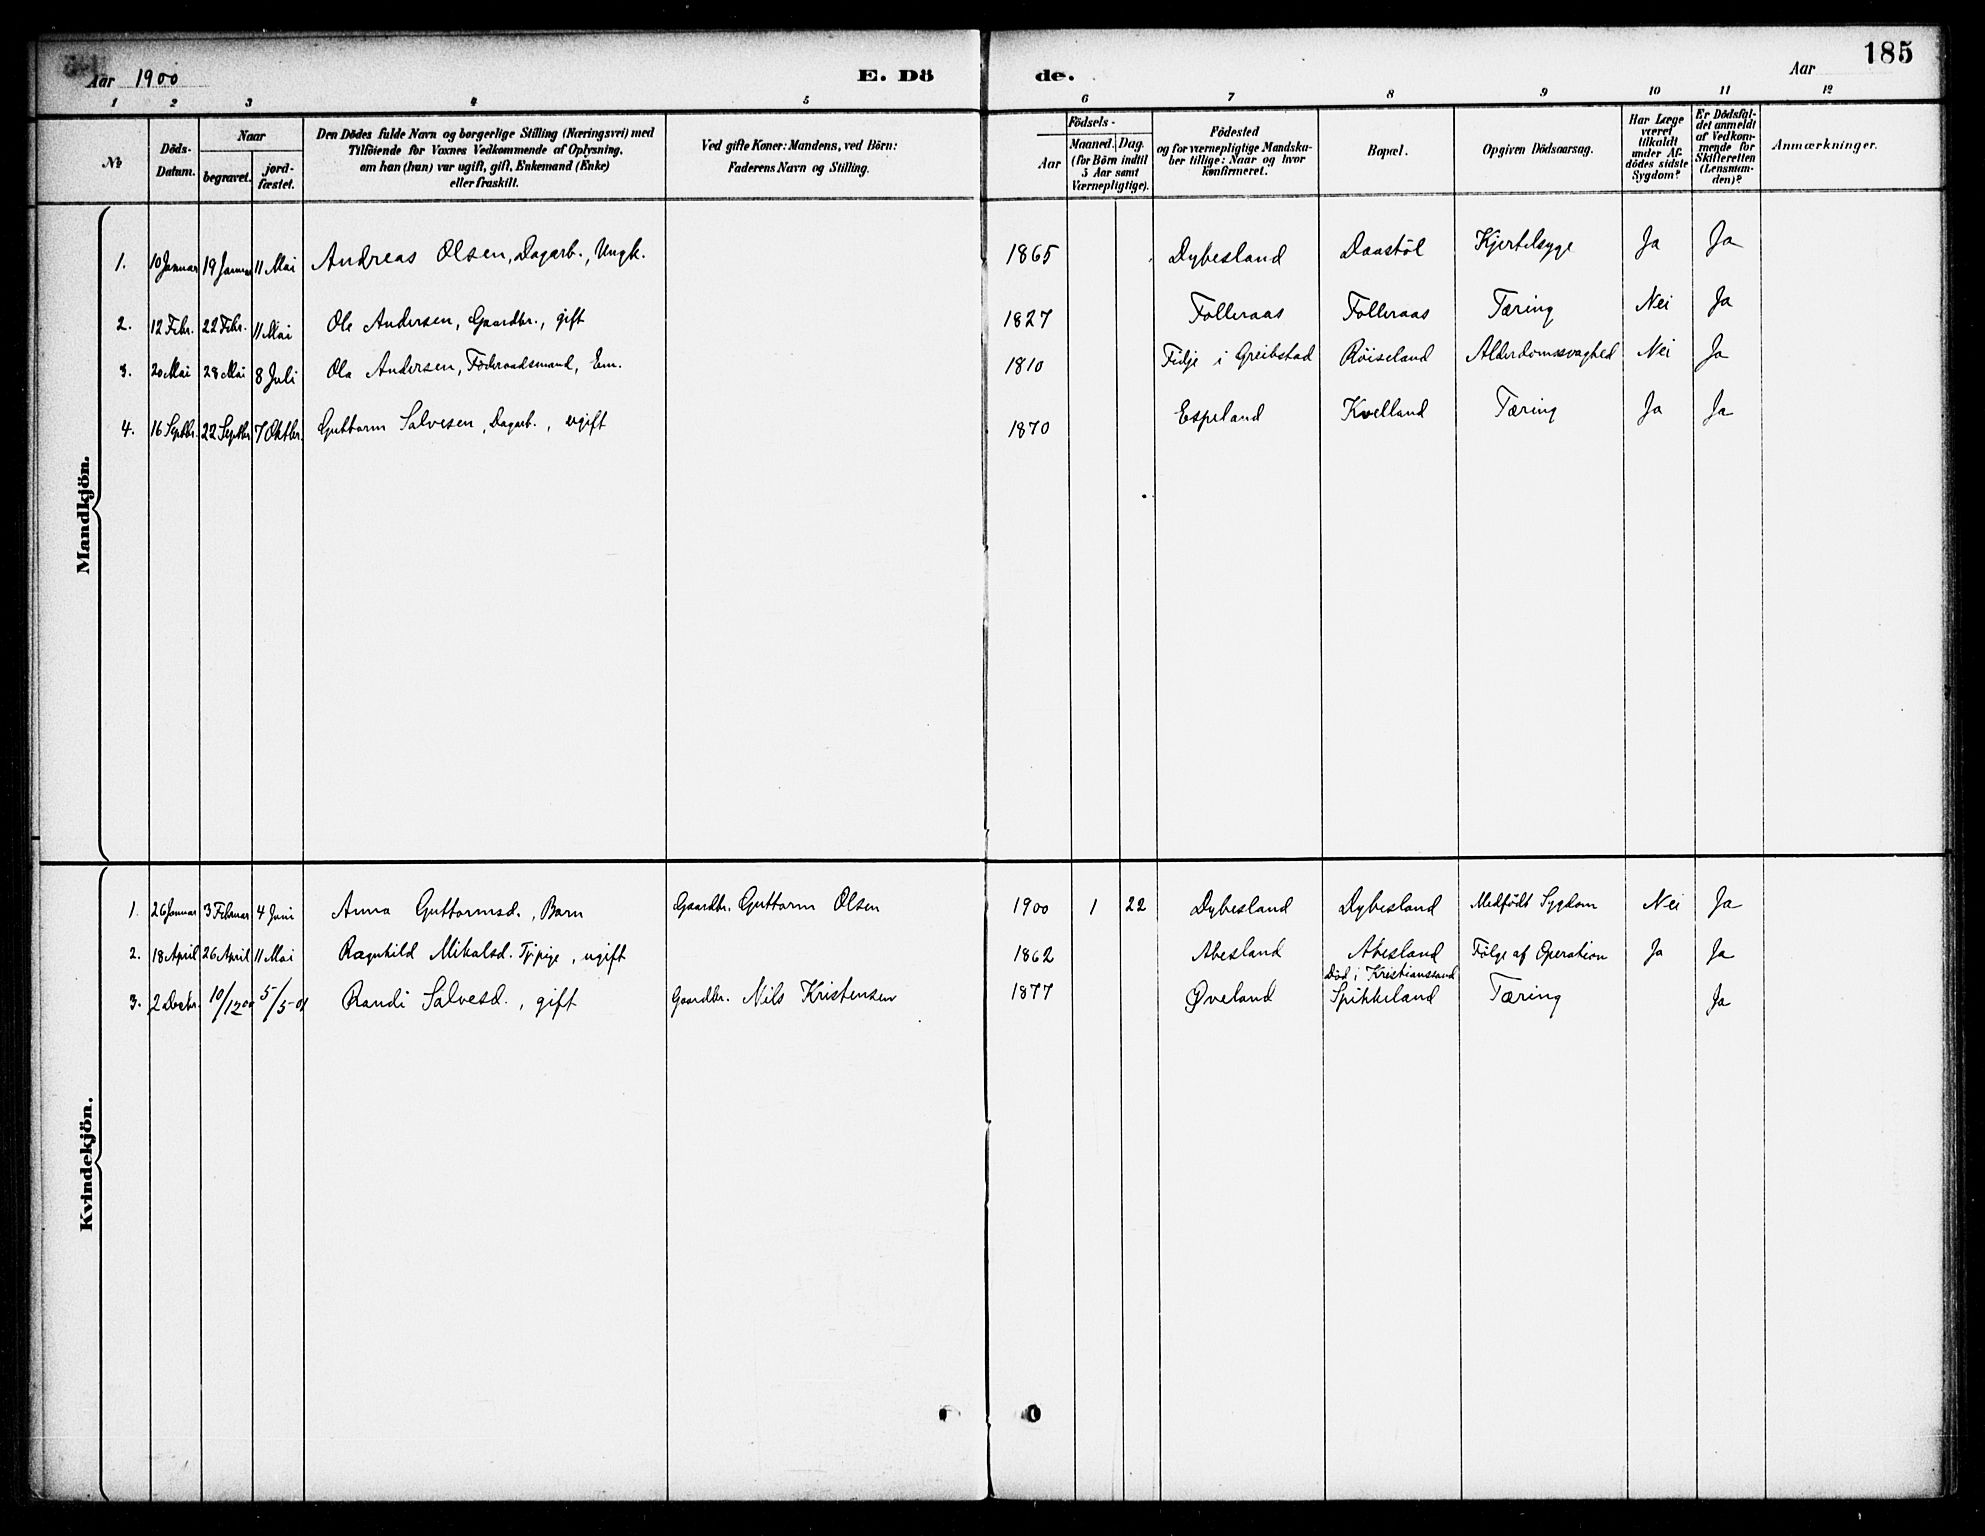 Aar 1900 E. Dö de. Aar 185
1 2 3 4 5 6 7 8 9 10 11 12
№
Döds-
Datum.
Naar
begravet.
jord-
fæstet.
Den Dödes fulde Navn og borgerlige Stilling (Næringsvei) med
Tilföiende for Voxnes Vedkommende af Oplysning,
om han (hun) var ugift, gift, Enkemand (Enke)
eller fraskilt.
Ved gifte Koner: Mandens, ved Börn:
Faderens Navn og Stilling.
Födsels-
Aar
Maaned. Dag.
(for Börn indtil
5 Aar samt
Værnepligtige).
Födested
og for værnepligtige Mandska-
ber tillige: Naar og hvor
konfirmeret.
Bopæl.
Opgiven Dödsaarsag.
Har Læge
været
tilkaldt
under Af-
dödes sidste
Sygdom?
Er Dödsfal-
det anmeldt
af Vedkom-
mende for
Skifteretten
(Lensman-
den)?
Anmærkninger.
Mandkjön.
1. 10 Januar 19 Januar 11 Mai Andreas Olsen, Dagarb., Ungk. 1865 Dybesland Daastöl Kjertelsyge Ja Ja
2. 12 Febr. 22 Febr. 11 Mai Ole Andersen, Gaardbr., gift 1827 Folleraas Folleraas Tæring Nei Ja
3. 20 Mai 28 Mai 8 Juli Ola Andersen, Föderaadsmand, Em. 1810 Fidje i Greibstad Röiseland Alderdomssvaghed Nei Ja
4. 16 Septbr. 22 Septbr. 7 Oktbr. Guttorm Salvesen, Dagarb., ugift 1870 Espeland Kvelland Tæring Ja Ja
Kvindekjön.
1. 26 Januar 3 Februar 4 Juni Anna Guttormsd., Barn Gaardbr. Guttorm Olsen 1900 1 22 Dybesland Dybesland Medfödt Sygdom Nei Ja
2. 18 April 26 April 11 Mai Ragnhild Mikalsd. Tj.pige, ugift 1862 Abesland Abesland Fölge af Operation Ja Ja
Död i Kristianssand
3. 2 Decbr. 10/12 00 5/5-01 Randi Salvesd., gift Gaardbr. Nils Kristensen 1877 Øveland Spikkeland Tæring Ja